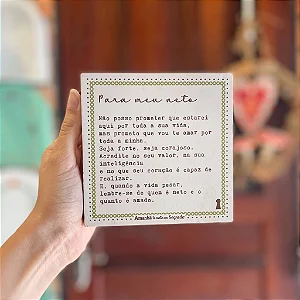 Para meu neto
Não posso prometer que estarei
aqui por toda a sua vida,
mas prometo que vou te amar por
toda a minha.
Seja forte, seja corajoso.
Acredite no seu valor, na sua
inteligência
e no que seu coração é capaz de
realizar.
E, quando a vida pesar,
lembre-se de quem é neto e o
quanto é amado.
Amanhã Sagrado